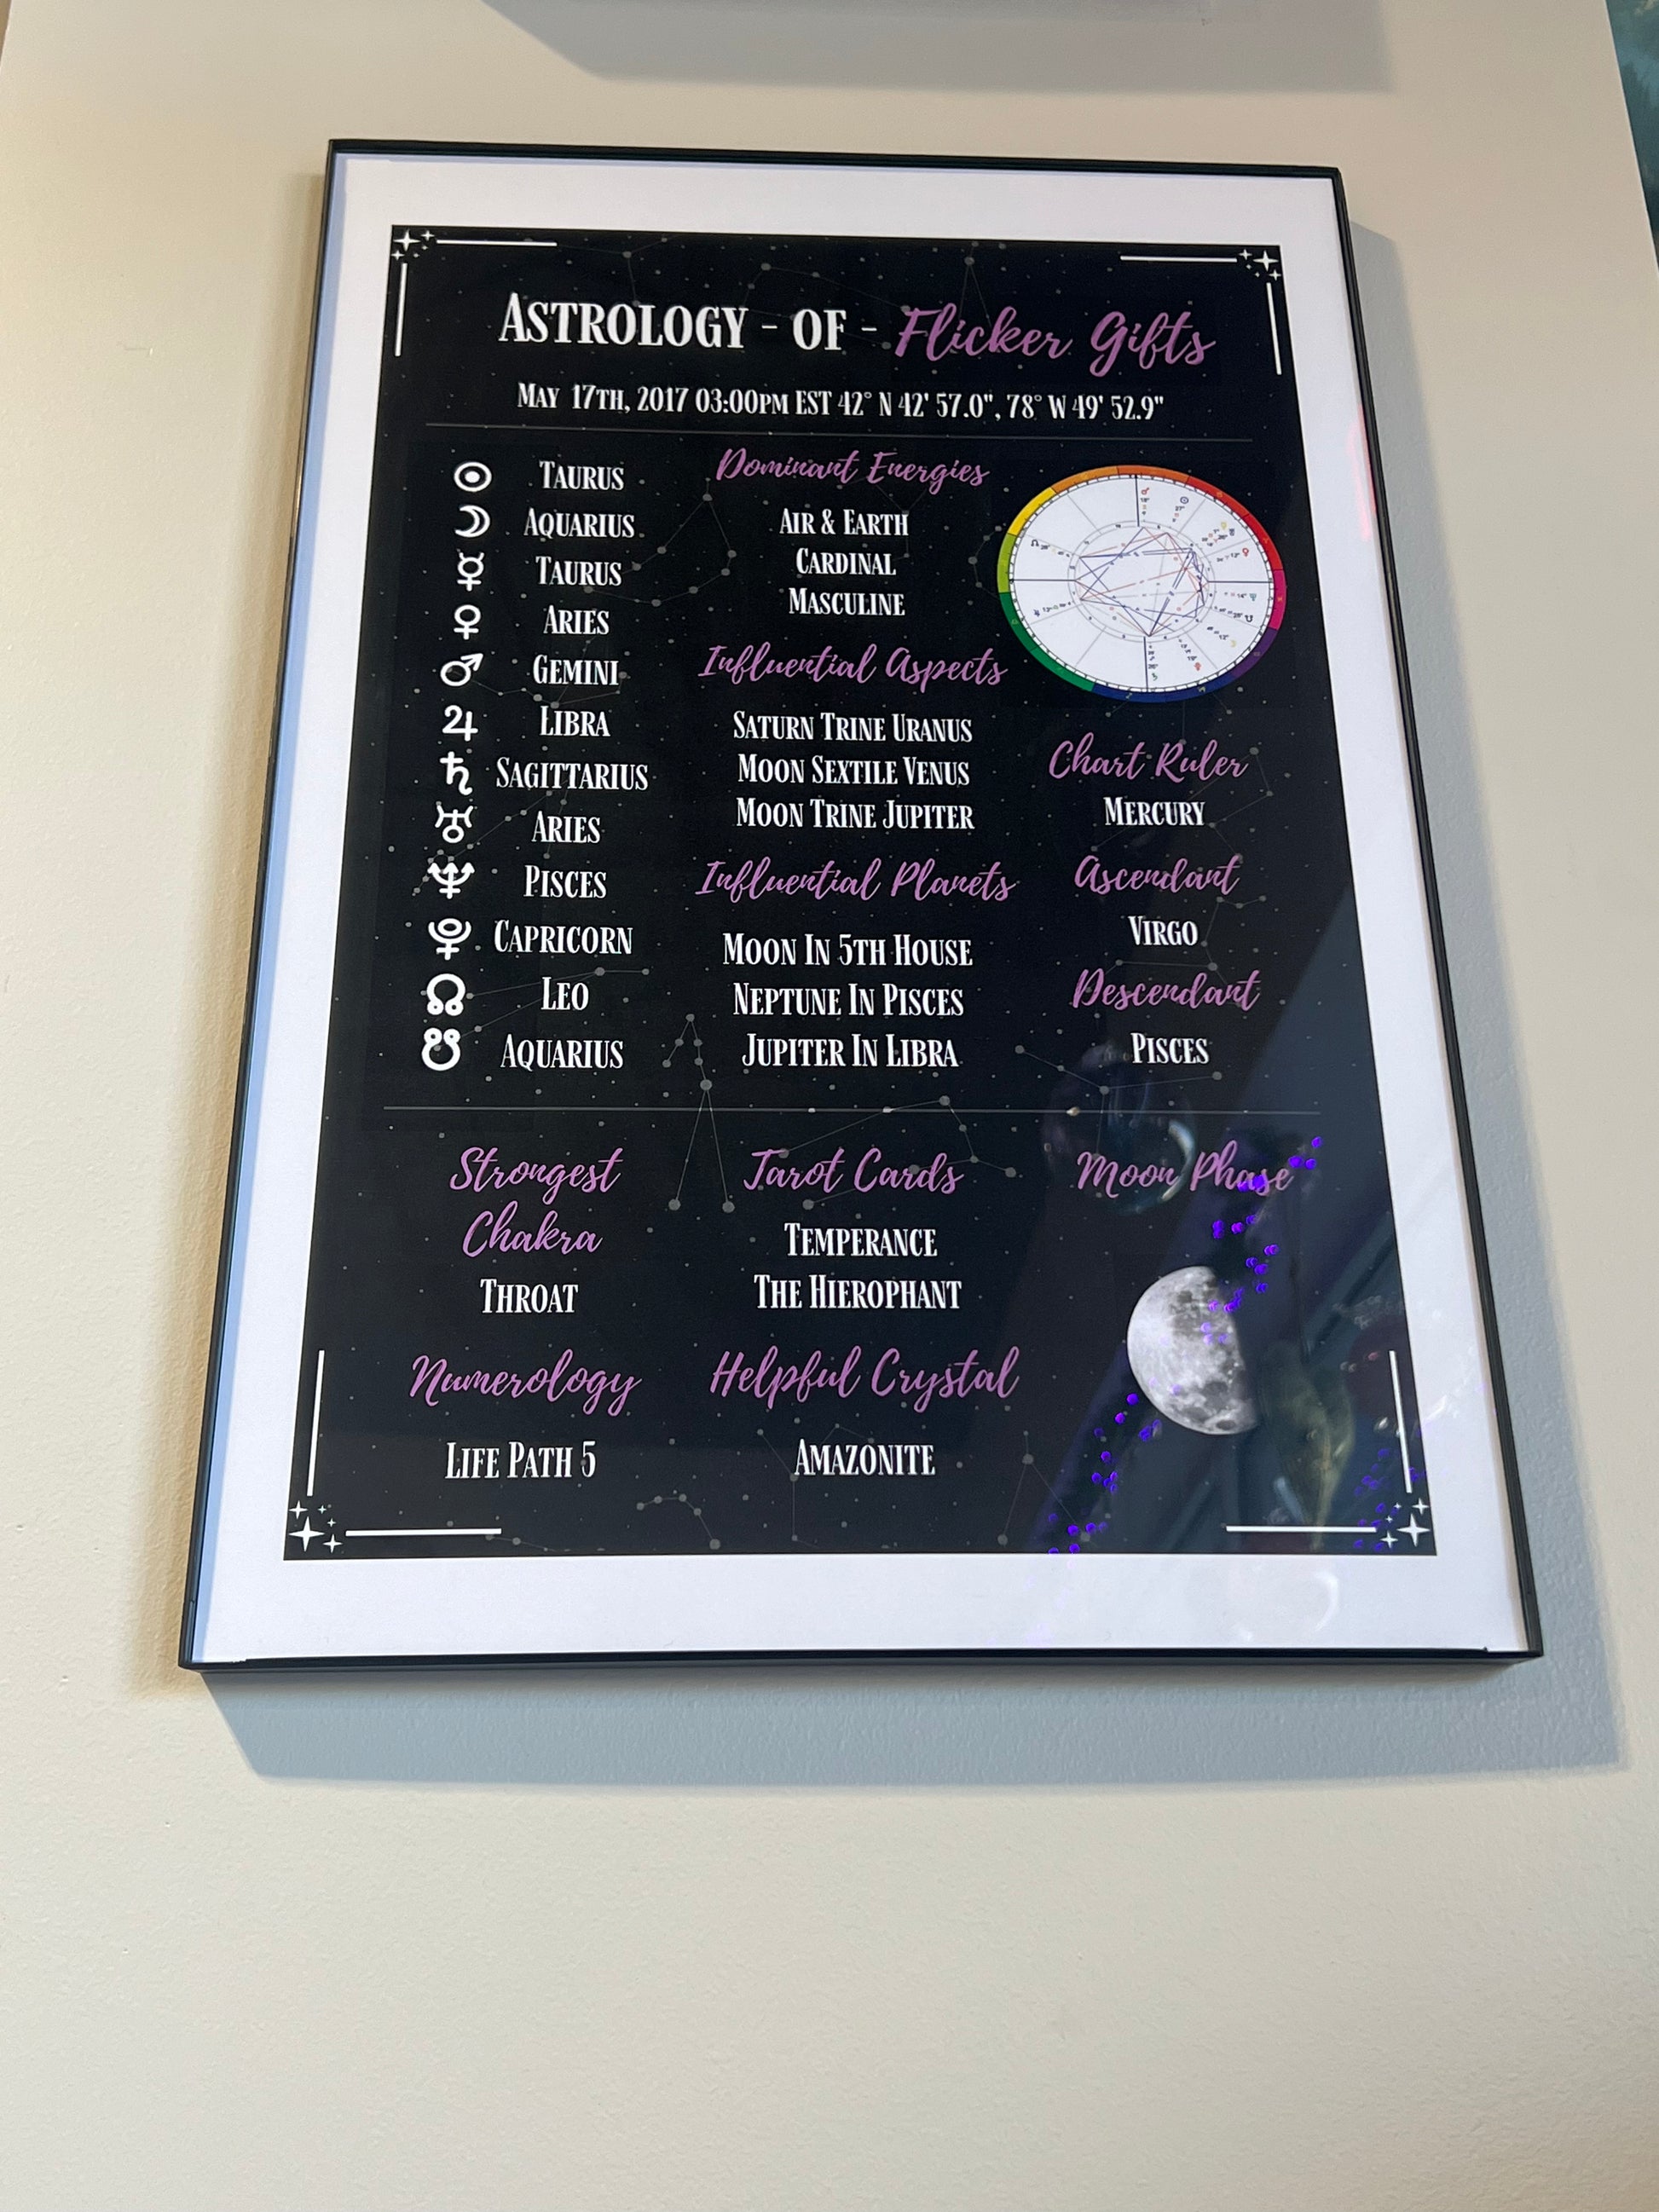 ASTROLOGY - OF - Flicker Gifts
MAY 17TH, 2017 03:00PM EST 42° N 42' 57.0", 78° W 49' 52.9"
☉ TAURUS
☽ AQUARIUS
☿ TAURUS
♀ ARIES
♂ GEMINI
♃ LIBRA
♄ SAGITTARIUS
♅ ARIES
♆ PISCES
♇ CAPRICORN
☊ LEO
☋ AQUARIUS
Dominant Energies
AIR & EARTH
CARDINAL
MASCULINE
Influential Aspects
SATURN TRINE URANUS
MOON SEXTILE VENUS
MOON TRINE JUPITER
Influential Planets
MOON IN 5TH HOUSE
NEPTUNE IN PISCES
JUPITER IN LIBRA
Chart Ruler
MERCURY
Ascendant
VIRGO
Descendant
PISCES
Strongest
Chakra
THROAT
Numerology
LIFE PATH 5
Tarot Cards
TEMPERANCE
THE HIEROPHANT
Helpful Crystal
AMAZONITE
Moon Phase